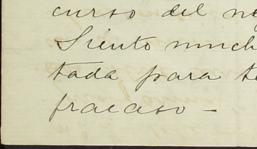 curso del
Siento
tada para
fracaso —